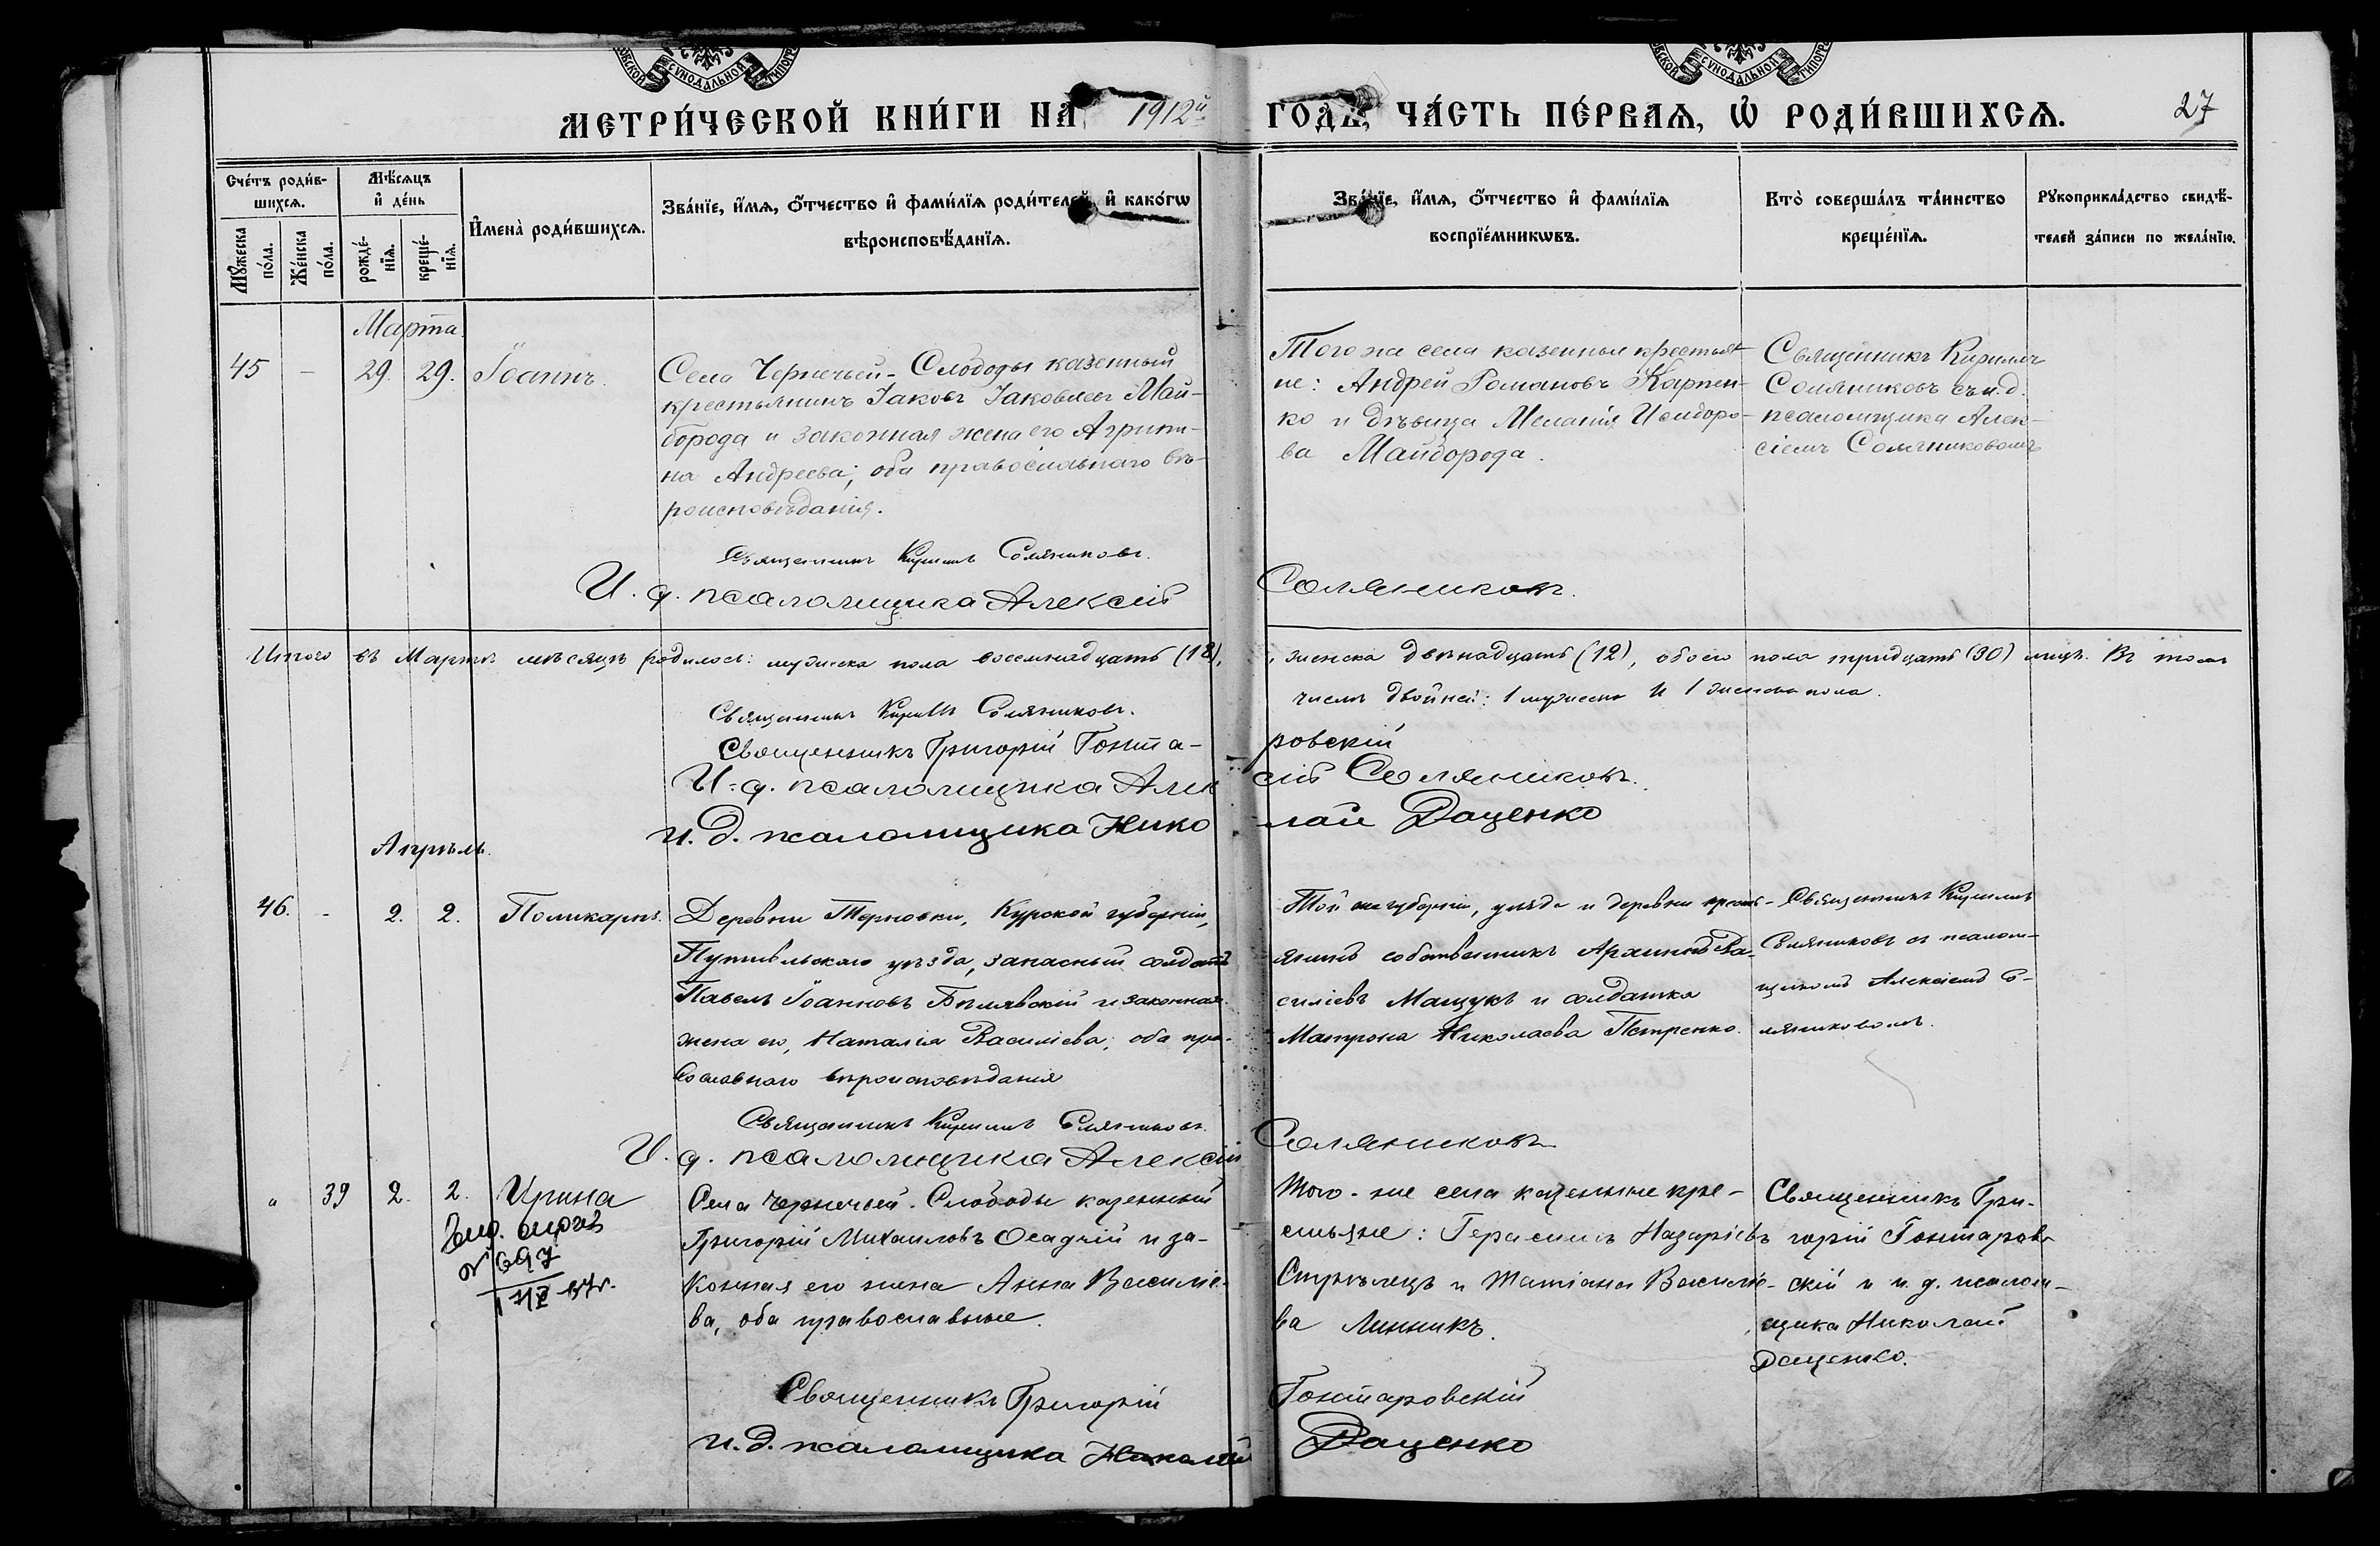 СѴНОДАЛЬНОЙ
СѴНОДАЛЬНОЙ
МЕТРИ́ЧЕСКОЙ КНИ́ГИ НА 1912й ГОДЪ, ЧА́СТЬ ПЕ́РВАѦ, Ѡ҆ РОДИ́ВШИХСѦ. 27
Сче́тъ роди́в-
шихсѧ.
Мꙋ́жеска по́ла.
Же́нска по́ла.
Мѣ́сѧцъ и҆ де́нь
рожде́-нїѧ.
креще́-нїѧ.
И҆мена̀ роди́вшихсѧ.
Зва́нїе, и҆́мѧ, ѻ҆́тчество и҆ фамі́лїѧ роди́телей, и҆ како́гѡ
вѣроисповѣ́данїѧ.
Зва́нїе, и҆́мѧ, ѻ҆́тчество и҆ фамі́лїѧ
воспрїе́мникѡвъ.
Кто̀ соверша́лъ та́инство
креще́нїѧ.
Рꙋкоприкла́дство свидѣ́-
телей за́писи по жела́нїю.
Марта
45 – 29. 29. Іоаннъ.
Села Чернечьей-Слободы казенный
крестьянинъ Іаковъ Іаковлевъ Май-
борода и законная жена его Агрипи-
на Андреева; оба православнаго вѣ-
роисповѣданія.
Того же села казенные крестья-
не: Андрей Романовъ Карпен-
ко и дѣвица Меланія Исидоро-
ва Майборода.
Священникъ Кириллъ
Соляниковъ съ и.д.
псаломщика Алек-
сіемъ Соляниковомъ
Священникъ Кириллъ Соляниковъ.
И. д. псаломщика Алексій Соляниковъ.
Итого въ Мартѣ мѣсяцѣ родилось: мужеска пола восемнадцать (18), женска двѣнадцать (12), обоего пола тридцать (30) лицъ. Въ томъ
числѣ двойней: 1 мужеска и 1 женска пола.
Священникъ Кириллъ Соляниковъ.
Священникъ Григорій Гонта-
ровскій
И. д. псаломщика Алек сій Соляниковъ.
и. д. псаломщика Нико лай Даценко
Апрѣль.
46. - 2. 2. Поликарпъ.
Деревни Терновки, Курской губерніи,
Путивльскаго уѣзда, запасный солдатъ
Павелъ Іоанновъ Бѣлявскій и законная
жена его, Наталія Василіева; оба пра-
вославнаго вѣроисповѣданія
Той же губерніи, уѣзда и деревни кресть-
янинъ собственникъ Архипъ Ва-
силіевъ Мащукъ и солдатка
Матрона Николаева Петренко.
Священникъ Кириллъ
Соляниковъ съ псалом-
щикомъ Алексіемъ Со-
ляниковомъ.
Священникъ Кириллъ Соляниковъ.
И. д. псаломщика Алексій Соляниковъ
" 39 2. 2. Ирина
№ 697
Села Чернечьей-Слободы казенный
Григорій Михаиловъ Осадчій и за-
конная его жена Анна Василіе-
ва, оба православные.
Того-же села казенные кре-
стьяне: Герасимъ Назаріевъ
Стрѣлецъ и Татіана Василіе-
ва Линникъ.
Священникъ Гри-
горій Гонтаров-
скій и и. д. псалом-
щика Николай
Даценко.
Священникъ Григорій Гонтаровскій
и. д. псаломщика Николай Даценко